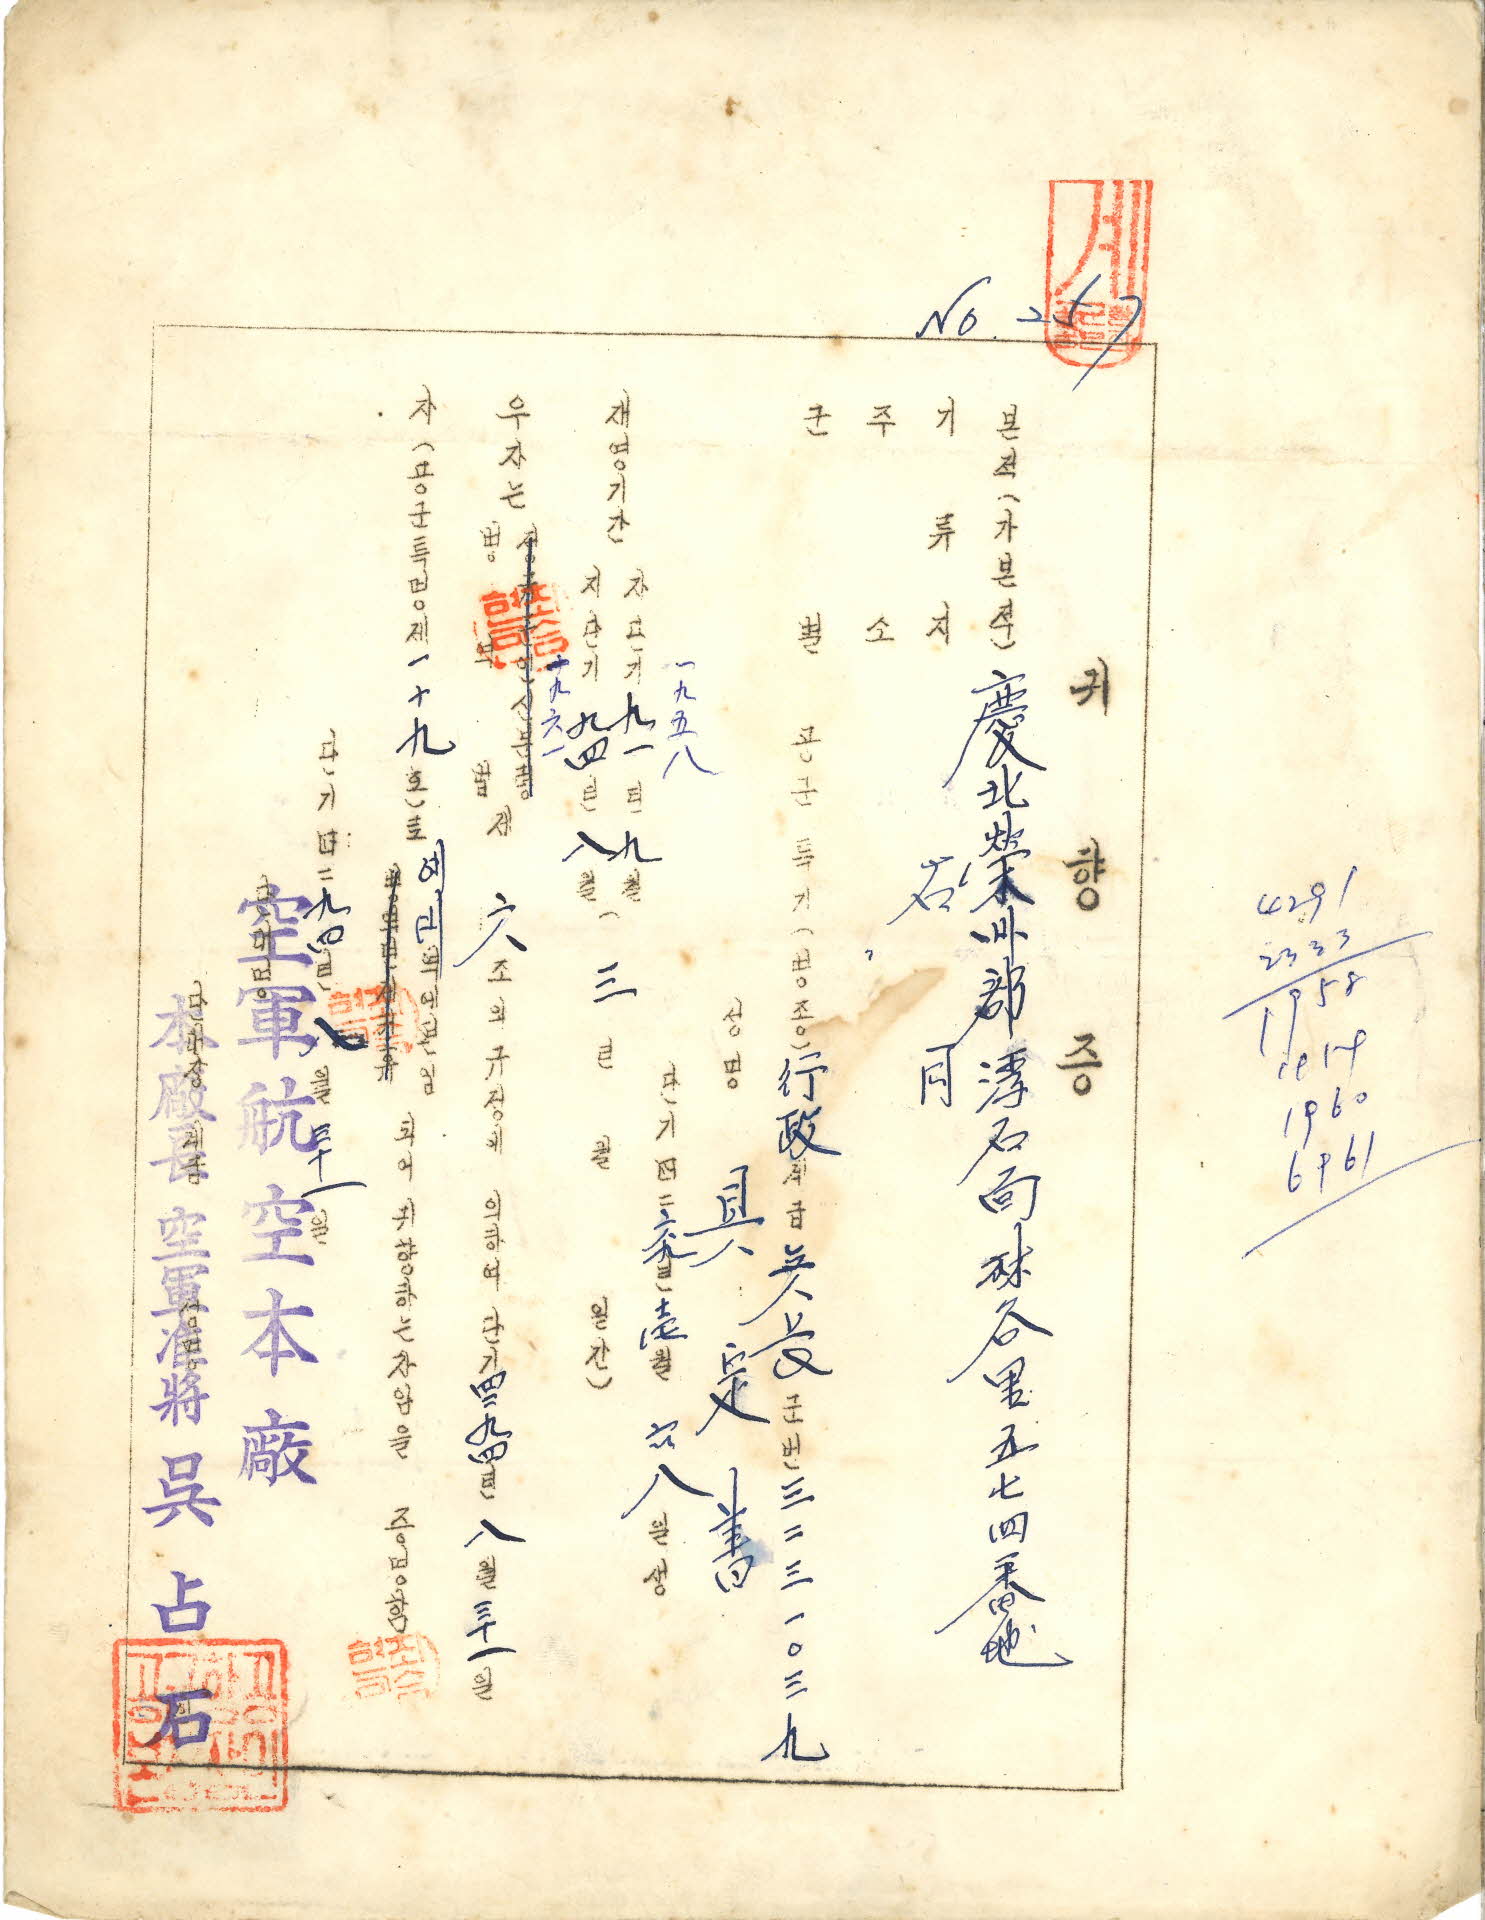 No. 257
귀향증
본적(가본적) 慶北榮州郡 浮石面 林谷里 五七四番地
기류지 右 同
주소 〃
군별 공군 특기(병종) 行政 계급 兵長 군번 三二三一〇三九
성명 具 定 書
단기四二六九년 壱월 六八일생
一九五八
재영기간 자단기九一년九월
지단기九四년八월 (三년 월 일간)
一九六一
우자는
병역법 제六조의 규정에 의하여 단기四二九四년八월三十一일
자(공군특명제一十九호)로 예비역에편입 되어 귀향하는자임을 증명함
단기四二九四년 八월 三十一일
부대명 空軍航空本廠
부대장 계급 성명
本廠長 空軍准將 吳占石
4291
2333
1958
1960
6961